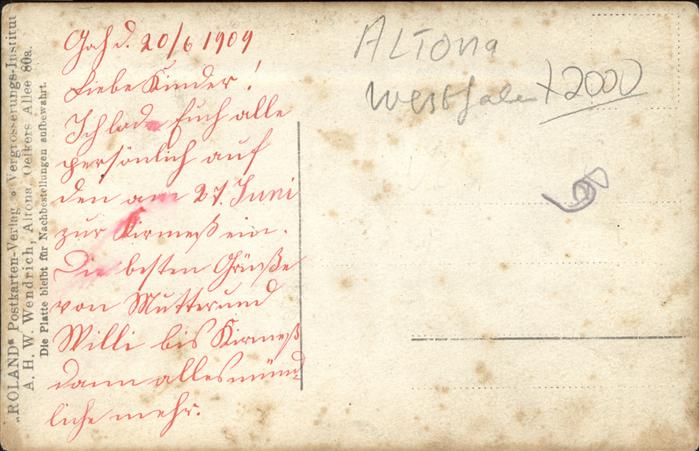 „ROLAND" Postkarten-Verlag • Vergrösserungs-Institut
A. H. W. Wendrich, Altona, Oelkers Allee 80a.
Die Platte bleibt für Nachbestellungen aufbewahrt.
d. 20/6 1909
Liebe Kinder!
Ich lade Euch alle
persönlich auf
den am 27. Juni
zur Kirmeß ein.
Die besten Grüße
von Mutter und
Willi bis Kirmeß
dann alles münd-
liche mehr.
ALTona
Westfalen X2000